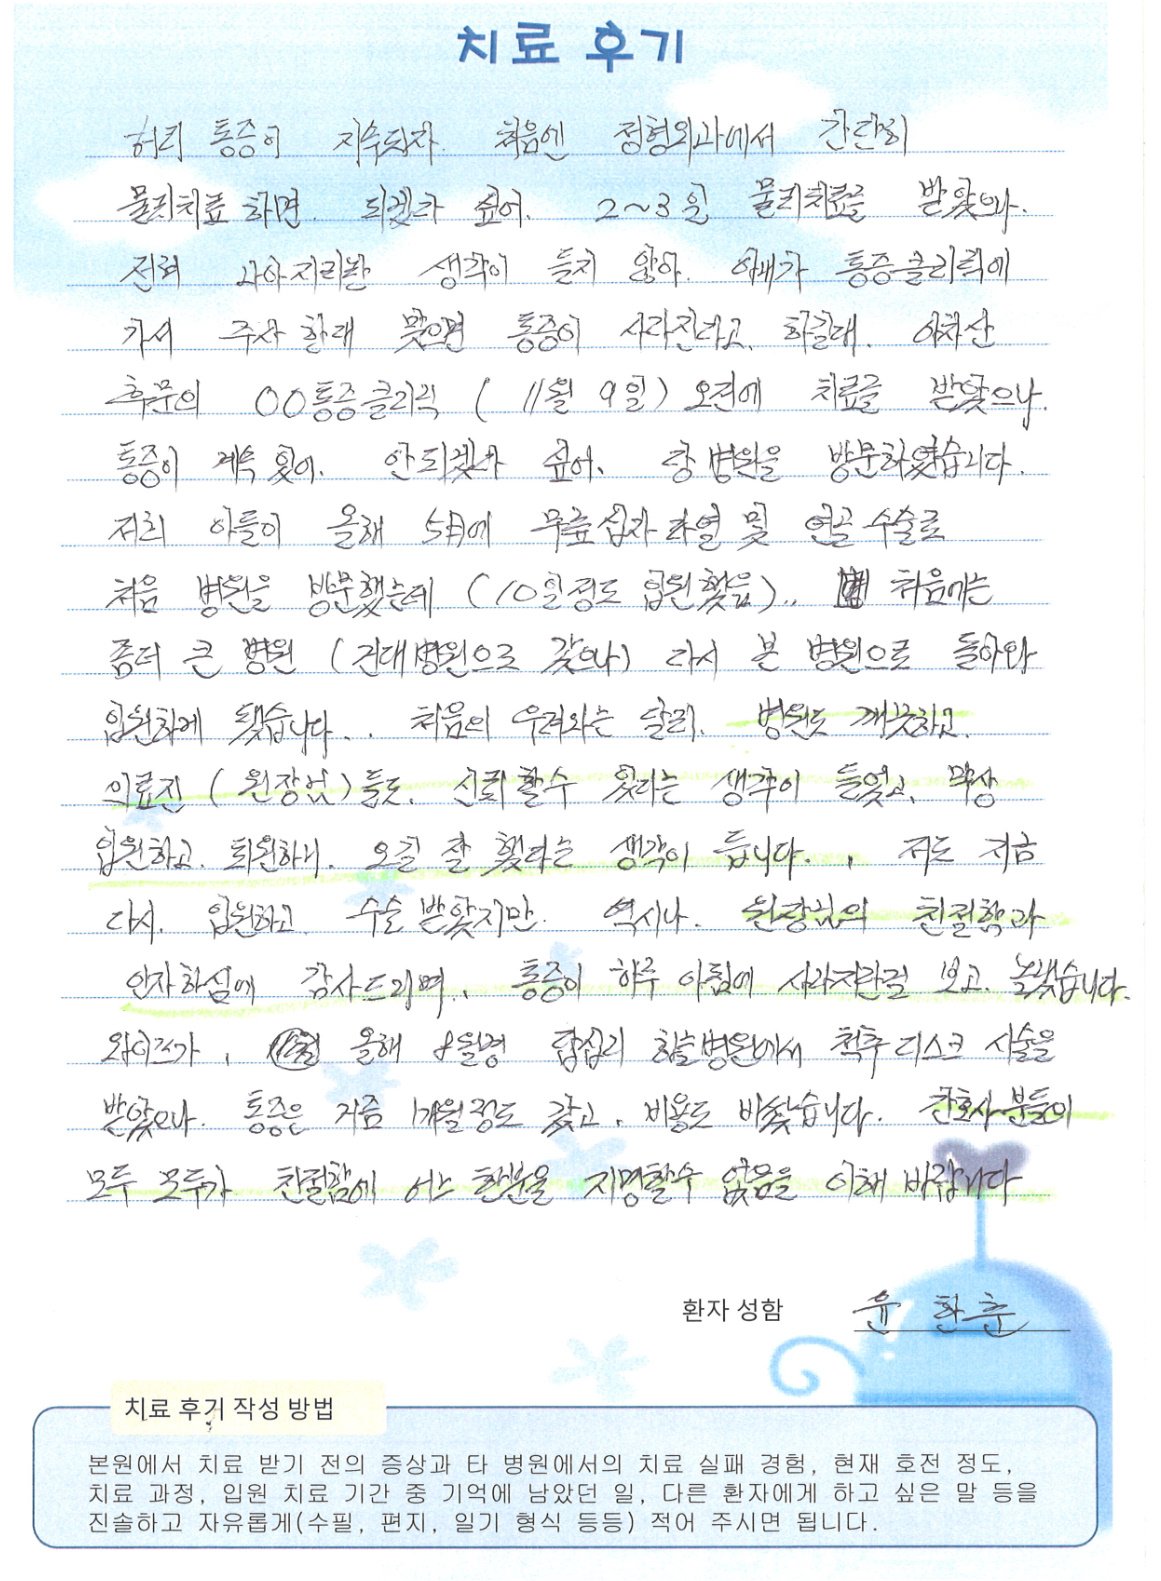 치료 후기
허리 통증이 지속되자. 처음엔 정형외과에서 간단히
물리치료 하면. 되겠다 싶어. 2~3일 물리치료를 받았으나.
전혀 나아지리란 생각이 들지 않아. 아내가 통증클리닉에
가서 주사 한대 맞으면 통증이 사라진다고. 하길래. 아차산
후문의 OO통증클리닉 ( 11월 9일) 오전에 치료를 받았으나.
통증이 계속 있어. 안되겠다 싶어. 강병원을 방문하였습니다.
저희 아들이 올해 5月에 무릎십자 파열 및 연골수술로
처음 병원을 방문했는데 (10일정도 입원했음).. 처음에는
좀더 큰 병원 (건대병원으로 갔으나) 다시 본 병원으로 돌아와
입원하게 됐습니다.. 처음의 우려와는 달리. 병원도 깨끗하고.
의료진 ( 원장님)들도. 신뢰할수 있다는 생각이 들었고, 막상
입원하고. 퇴원하니. 오길 잘 했다는 생각이 듭니다.. 저도 지금
다시. 입원하고 수술 받았지만. 역시나. 원장님의 친절함과
인자하심에 감사드리며.. 통증이 하루 아침에 사라진걸 보고. 놀랬습니다.
와이프가, 올해 8월경 답십리 병원에서 척추디스크 시술을
받았으나. 통증은 지금 1개월정도 갔고, 비용도 비쌌습니다. 간호사분들의
모두 모두가 친절함에 어느 한분을 지명할수 없음을 이해 바랍니다
환자 성함 윤 환 춘
치료 후기 작성 방법
본원에서 치료 받기 전의 증상과 타 병원에서의 치료 실패 경험, 현재 호전 정도,
치료 과정, 입원 치료 기간 중 기억에 남았던 일, 다른 환자에게 하고 싶은 말 등을
진솔하고 자유롭게(수필, 편지, 일기 형식 등등) 적어 주시면 됩니다.